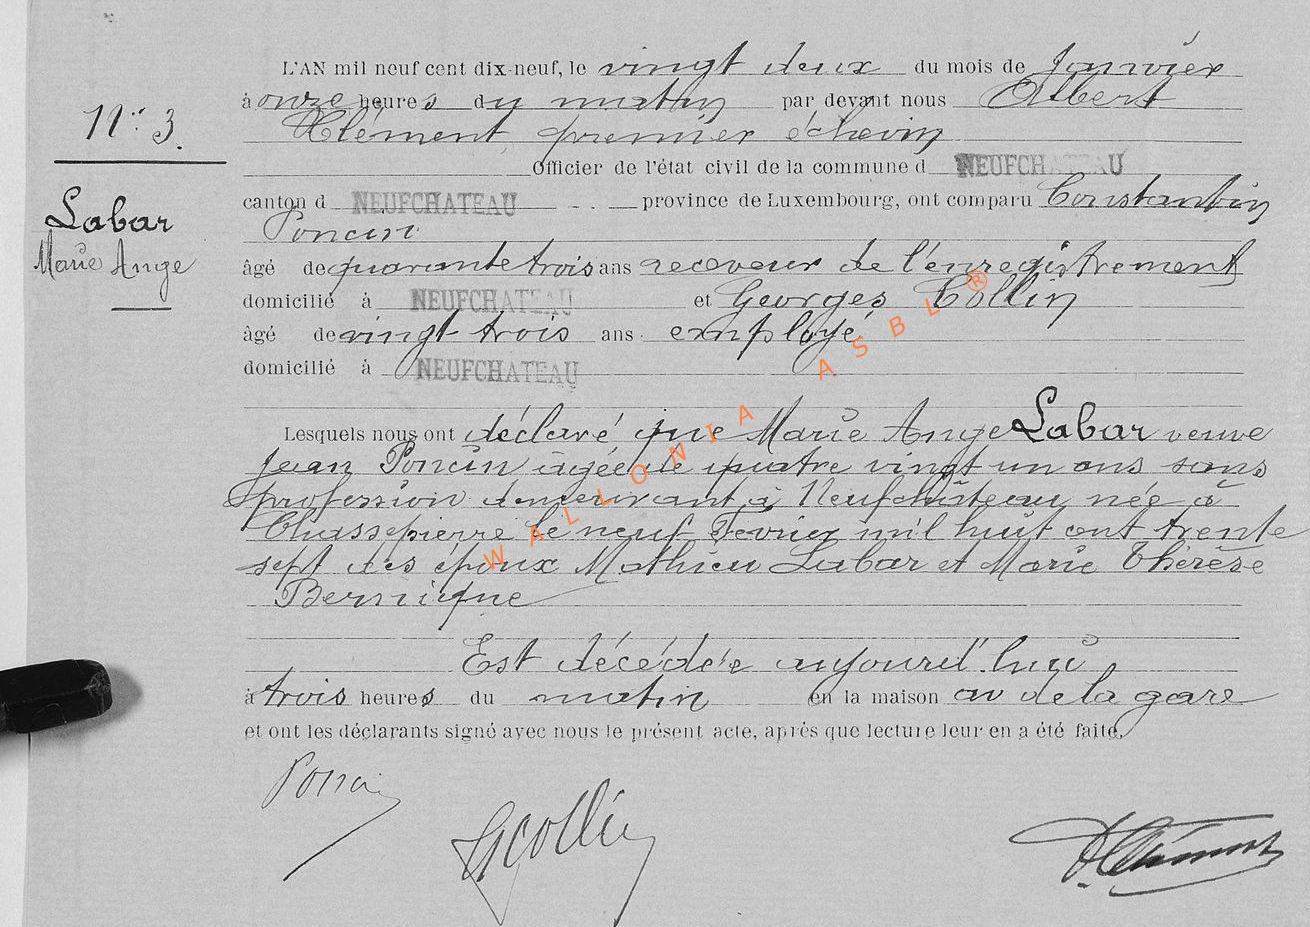 N° 3.
Labar
Marie Ange
L'AN mil neuf cent dix-neuf, le vingt deux du mois de Janvier
à onze heures du matin par devant nous Albert
Clément, premier échevin
Officier de l'état civil de la commune d NEUFCHATEAU
canton d NEUFCHATEAU province de Luxembourg, ont comparu Constantin
Poncin
âgé de quarante trois ans receveur de l'enregistrement
domicilié à NEUFCHATEAU et Georges Collin
âgé de vingt trois ans employé
domicilié à NEUFCHATEAU
Lesquels nous ont déclaré que Marie Ange Labar veuve
Jean Poncin agée de quatre vingt un ans sans
profession demeurant à Neufchâteau née à
Chassepierre le neuf Fevrier mil huit cent trente
sept des époux Mathieu Labar et Marie Thérèse
Bernique
Est décédée aujourd'hui
à trois heures du matin en la maison av de la gare
et ont les déclarants signé avec nous le présent acte, après que lecture leur en a été faite,
Poncin
G Collin
A Clément
WALLONIA ASBL ®